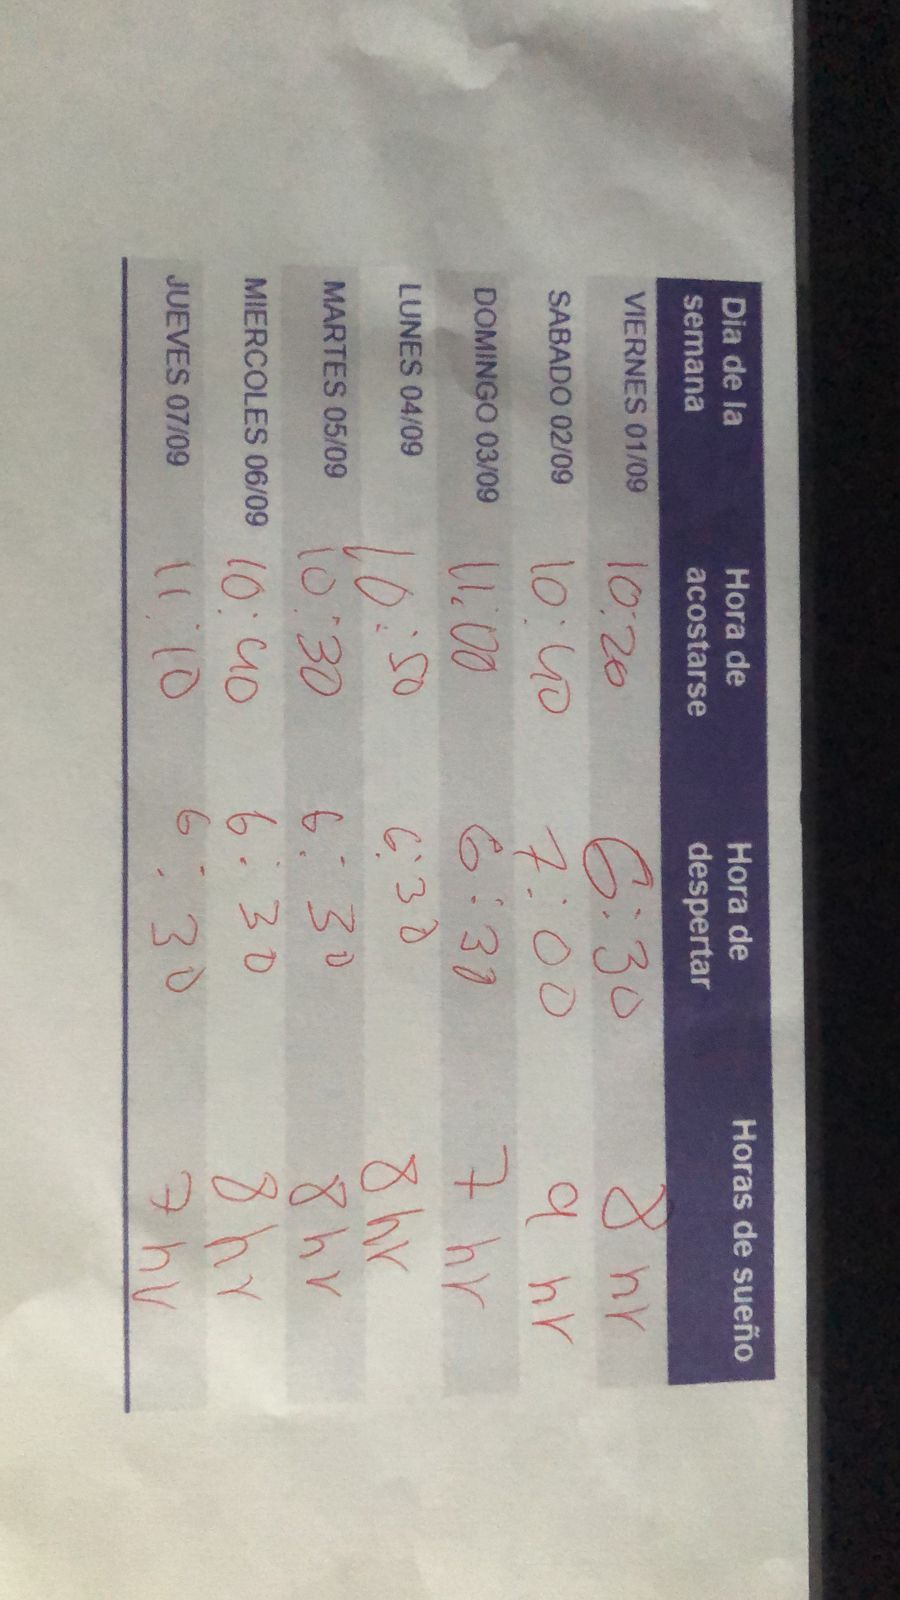 Dia de la semana Hora de acostarse Hora de despertar Horas de sueño
VIERNES 01/09 10:20 6:30 8 hr
SABADO 02/09 10:40 7:00 9 hr
DOMINGO 03/09 11:00 6:30 7 hr
LUNES 04/09 10:50 6:30 8 hr
MARTES 05/09 10:30 6:30 8 hr
MIERCOLES 06/09 10:40 6:30 8 hr
JUEVES 07/09 11:10 6:30 7 hr